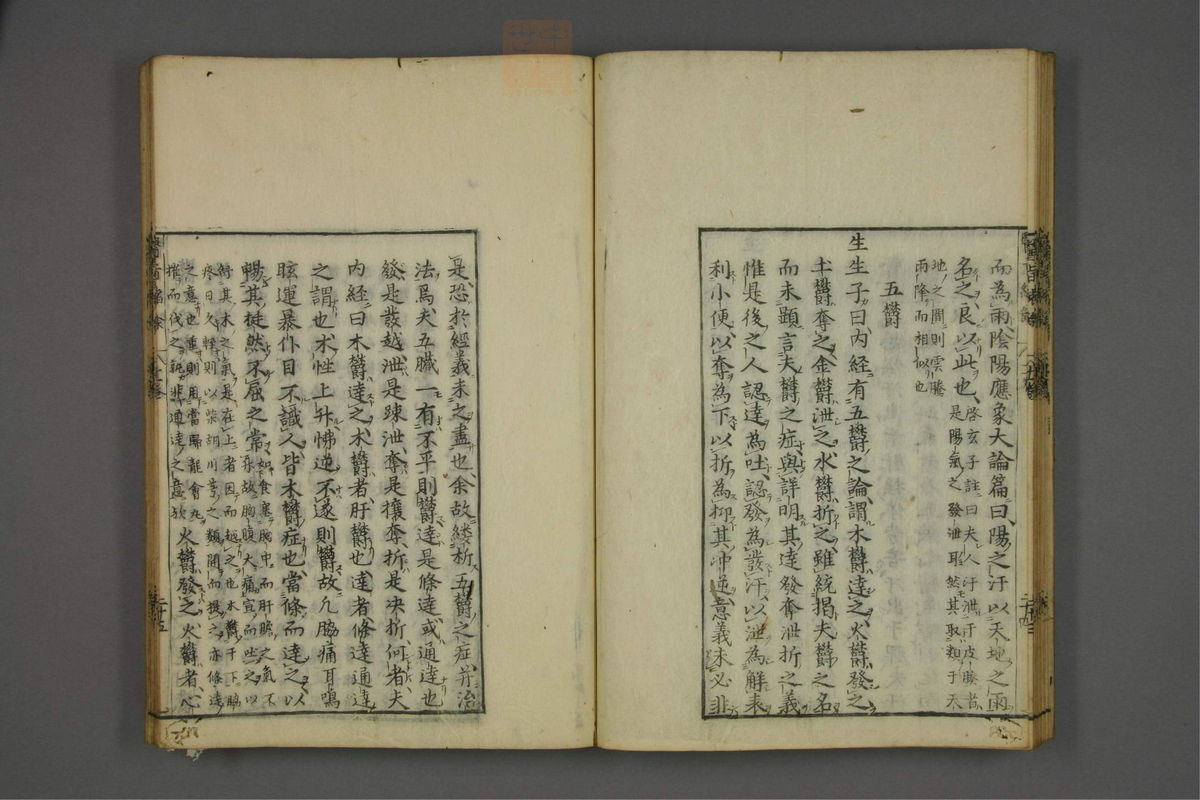 而為雨陰陽應象大論篇曰陽之汗以天地之雨
名之良以此也啓玄子註曰夫人汗泄于皮腠者
是陽氣之發泄耳然其取類于天
地之間則雲騰
雨降而相似也
五欝
生生子曰内經有五欝之論謂木欝達之火欝發之
土欝奪之金欝泄之水欝折之雖統揭夫欝之名
而未顕言夫欝之症與詳明其達發奪泄折之義
惟是後之人認達為吐認發為發汗以泄為解表
利小便以奪為下以折為抑其冲逆意義未必非
是恐於經義未之盡也余故縷析五欝之症并治
法焉夫五臓一有不平則欝達是條達或通達也
發是發越泄是踈泄奪是攘奪折是决折何者夫
内經曰木欝達之木欝者肝欝也達者條達通達
之謂也木性上升怫逆不遂則欝故凢脇痛耳鳴
眩運暴仆目不識人皆木欝症也當條而達之以
暢其挺然不屈之常如食塞胸中而肝膽之氣不
升故胸腹大痛宣而吐之以
舒其木之氣是在上者因而越之也木欝于下脇
疼日久輕則以柴胡川芎之類開而提之亦條達
之意也重則用當歸龍會丸
摧而伐之孰非通達之意㰤火欝發之火欝者心